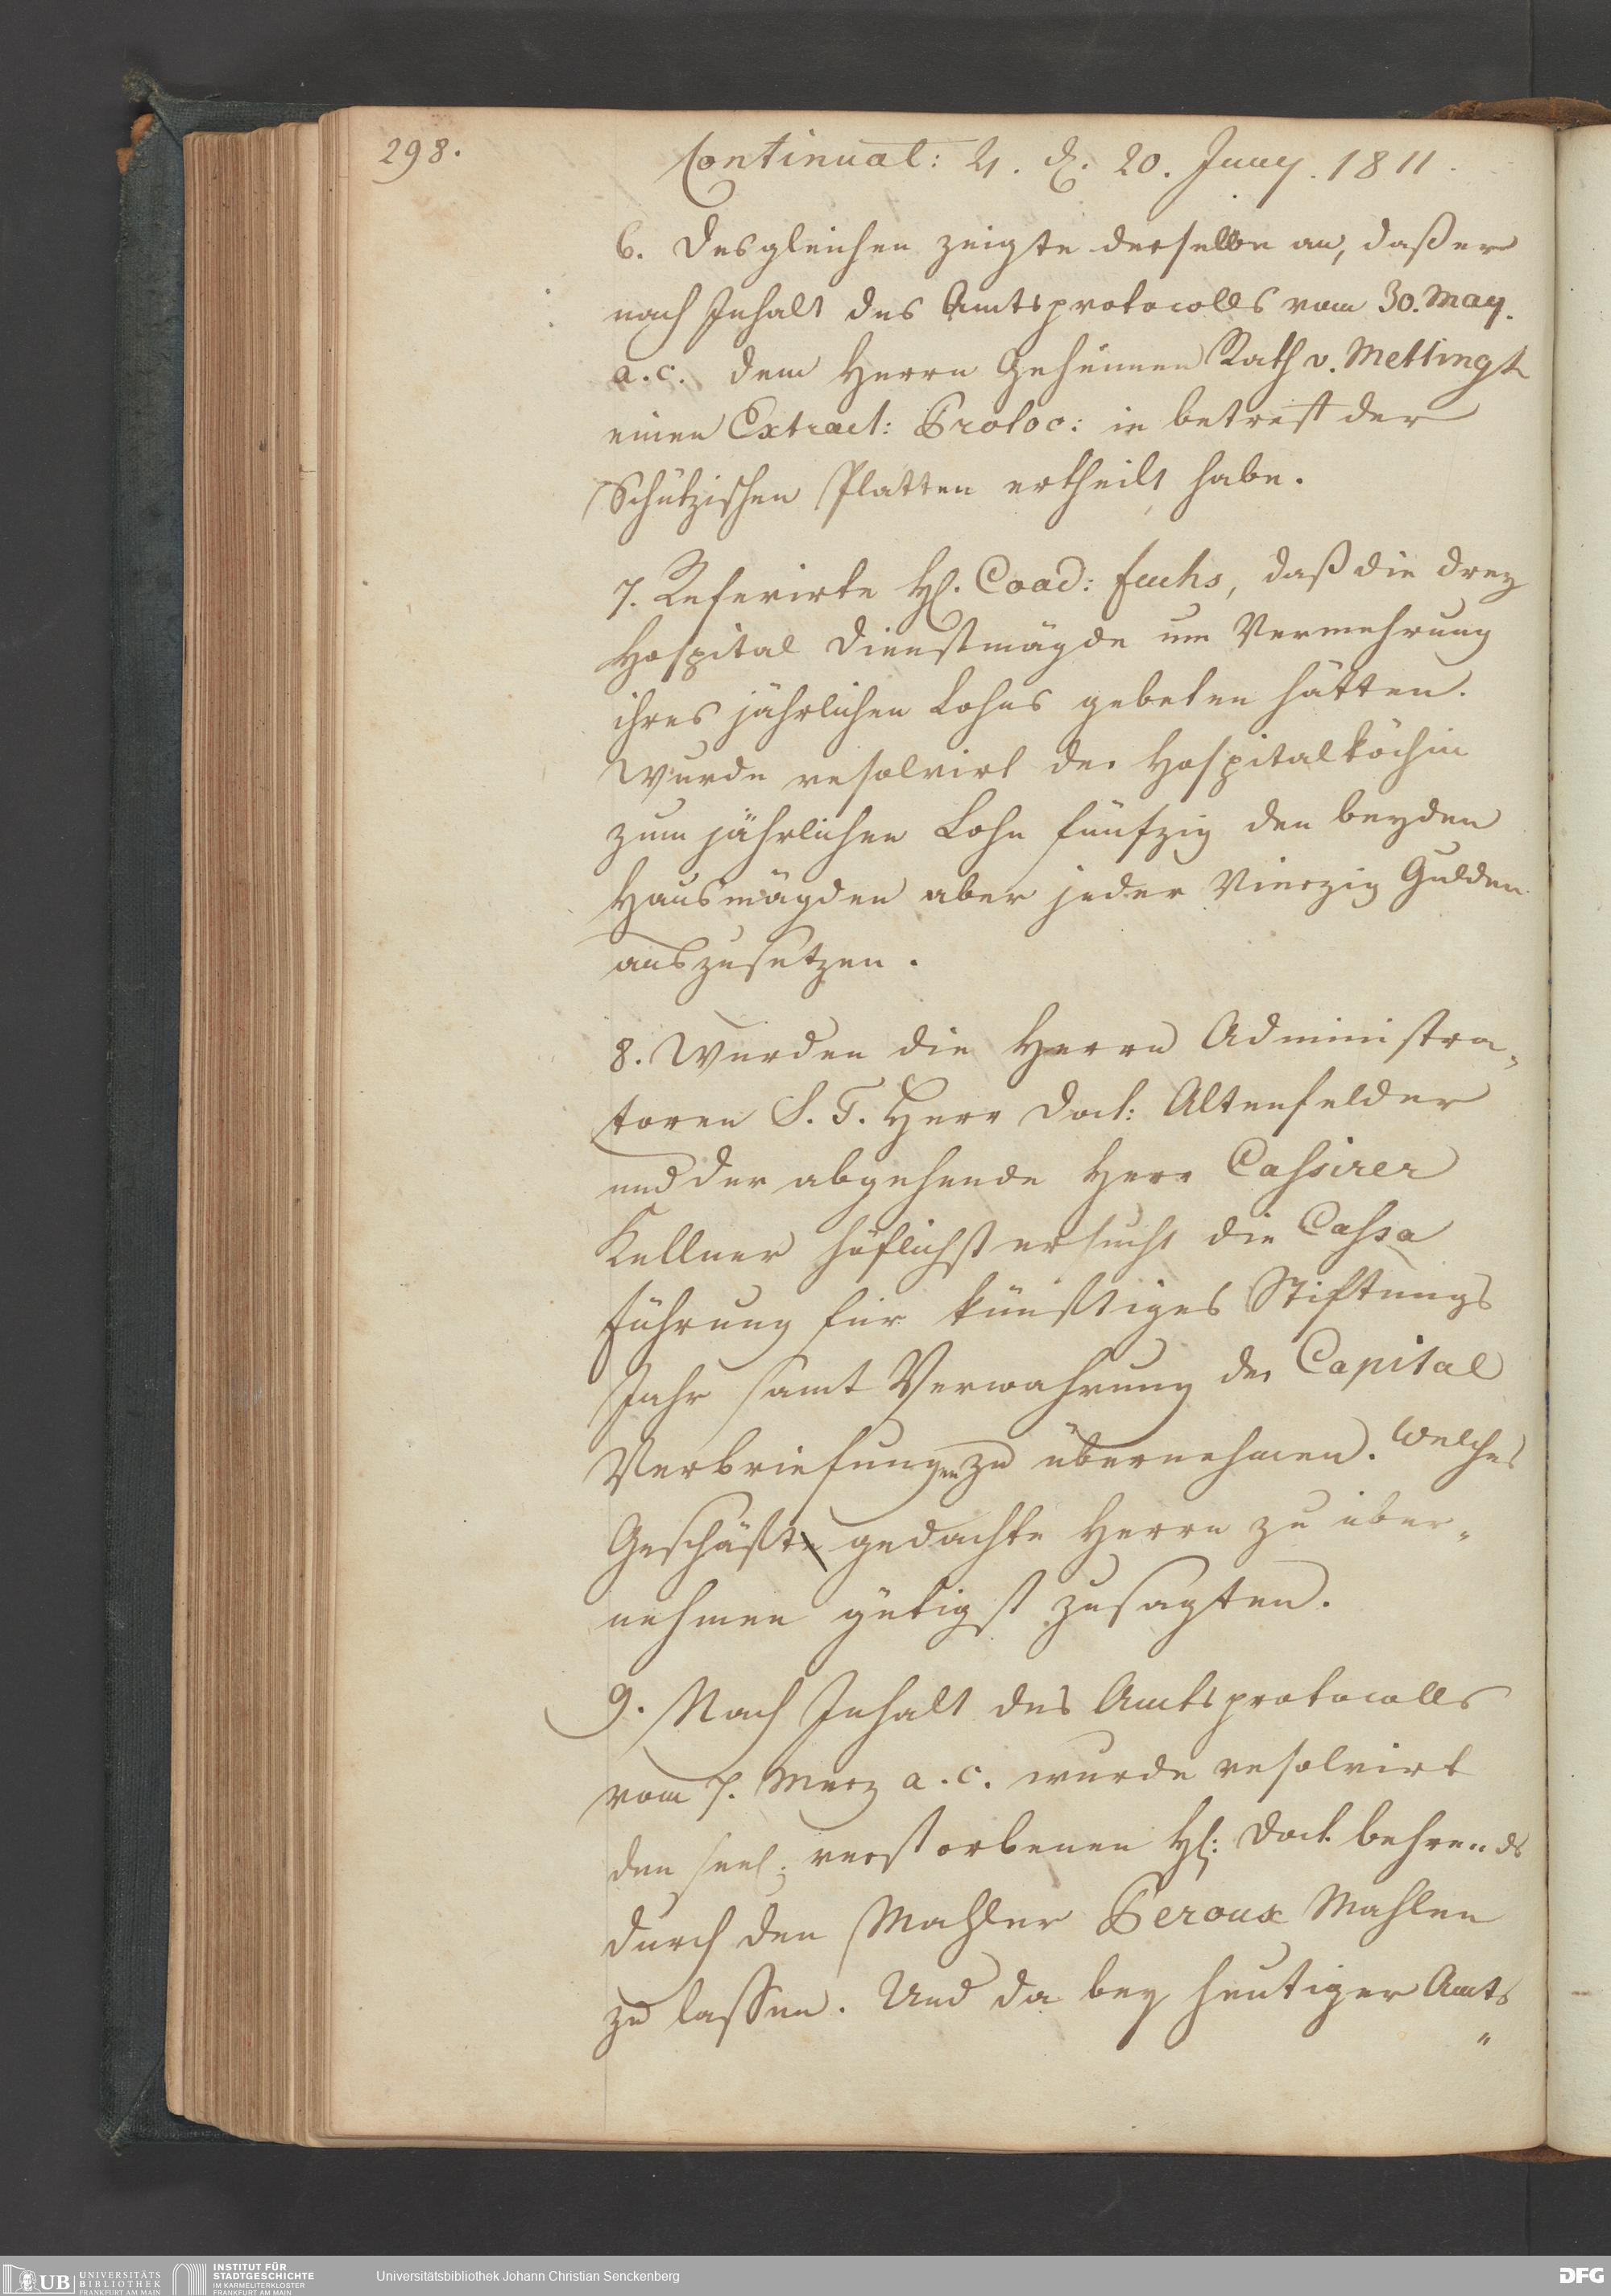 298.
Continuat: 4. d. 20. Juny. 1811.
6. Desgleichen zeigte derselbe an, daß er
nach Inhalt des Amtsprotocolls vom 30. May.
a. c. dem Herrn Geheimen Rath v. Mettingh
einen Extract: Protoc: in betreff der
Schützischen Platten ertheilt habe.
7. Referirte H. Coad: Fuchs, daß die drey
Hospital Dienstmägde um Vermehrung
ihres jährlichen Lohns gebeten hätten.
Wurde resolvirt der Hospitalköchin
zum jährlichen Lohn fünfzig den beyden
Hausmägden aber jeder Vierzig Gulden
auszusetzen.
8. Wurden die Herrn Administra„
toren S. T. Herr Doct: Altenfelder
und der abgehende Herr Cassirer
Kellner höflichst ersucht die Cassa
führung für künftiges Stiftungs
Jahr samt Verwahrung der Capital
Verbriefungen zu übernehmen. Welches
Geschäft gedachte Herrn zu über„
nehmen gütigst zusagten.
9. Nach Inhalt des Amtsprotocolls
vom 7. Merz a. c. wurde resolvirt
den seel: verstorbenen H: Doct. Behrends
durch den Mahler Peroux Mahlen
zu lassen. Und da bey heutiger Amts
"
UB UNIVERSITÄTS
BIBLIOTHEK
FRANKFURT AM MAIN
INSTITUT FÜR
STADTGESCHICHTE
IM KARMELITERKLOSTER
FRANKFURT AM MAIN
Universitätsbibliothek Johann Christian Senckenberg
DFG